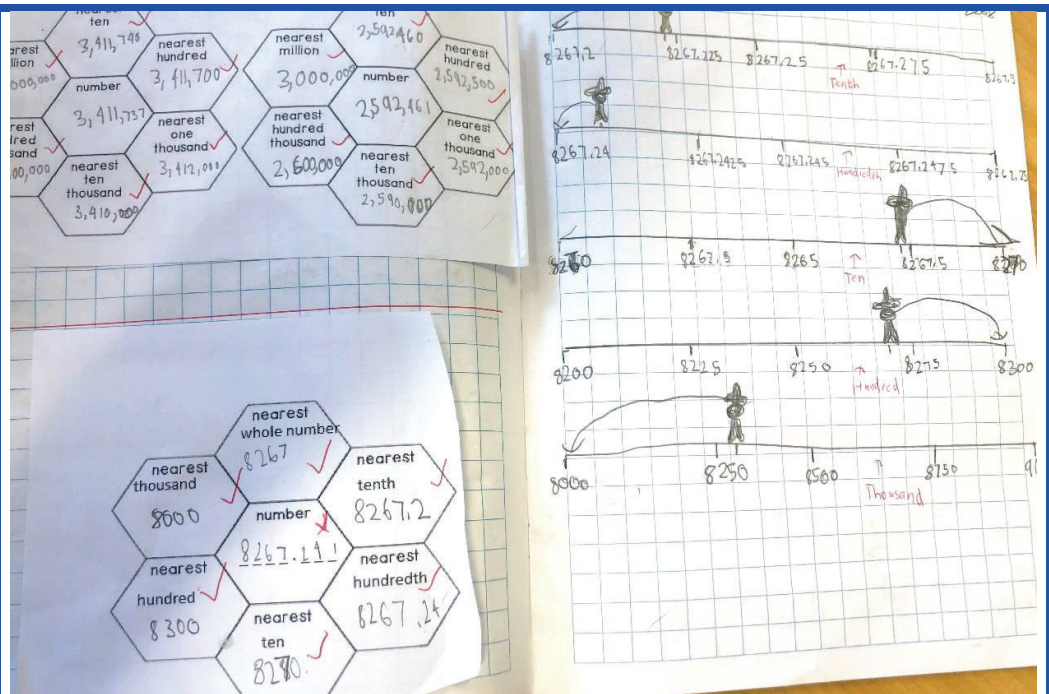 ten
3,411,740
nearest
hundred
3,411,700
number
3,411,737
nearest
one
thousand
3,412,000
nearest
ten
thousand
3,410,000
nearest
million
3,000,000
ten
2,592,460
nearest
hundred
2,592,500
number
2,592,461
nearest
hundred
thousand
2,600,000
nearest
one
thousand
2,592,000
nearest
ten
thousand
2,590,000
nearest
whole number
8267
nearest
thousand
8000
nearest
tenth
8267.2
number
nearest
hundred
8300
nearest
hundredth
8267.24
nearest
ten
8270.
8267.2
8267.225
8267.25
8267.275
8267.3
Tenth
8267.24
8267.2425
8267.245
8267.2475
Hundredth
8265
8267.5
8270
Ten
8200
8225
8250
8275
8300
Hundred
8000
8250
8500
8750
Thousand